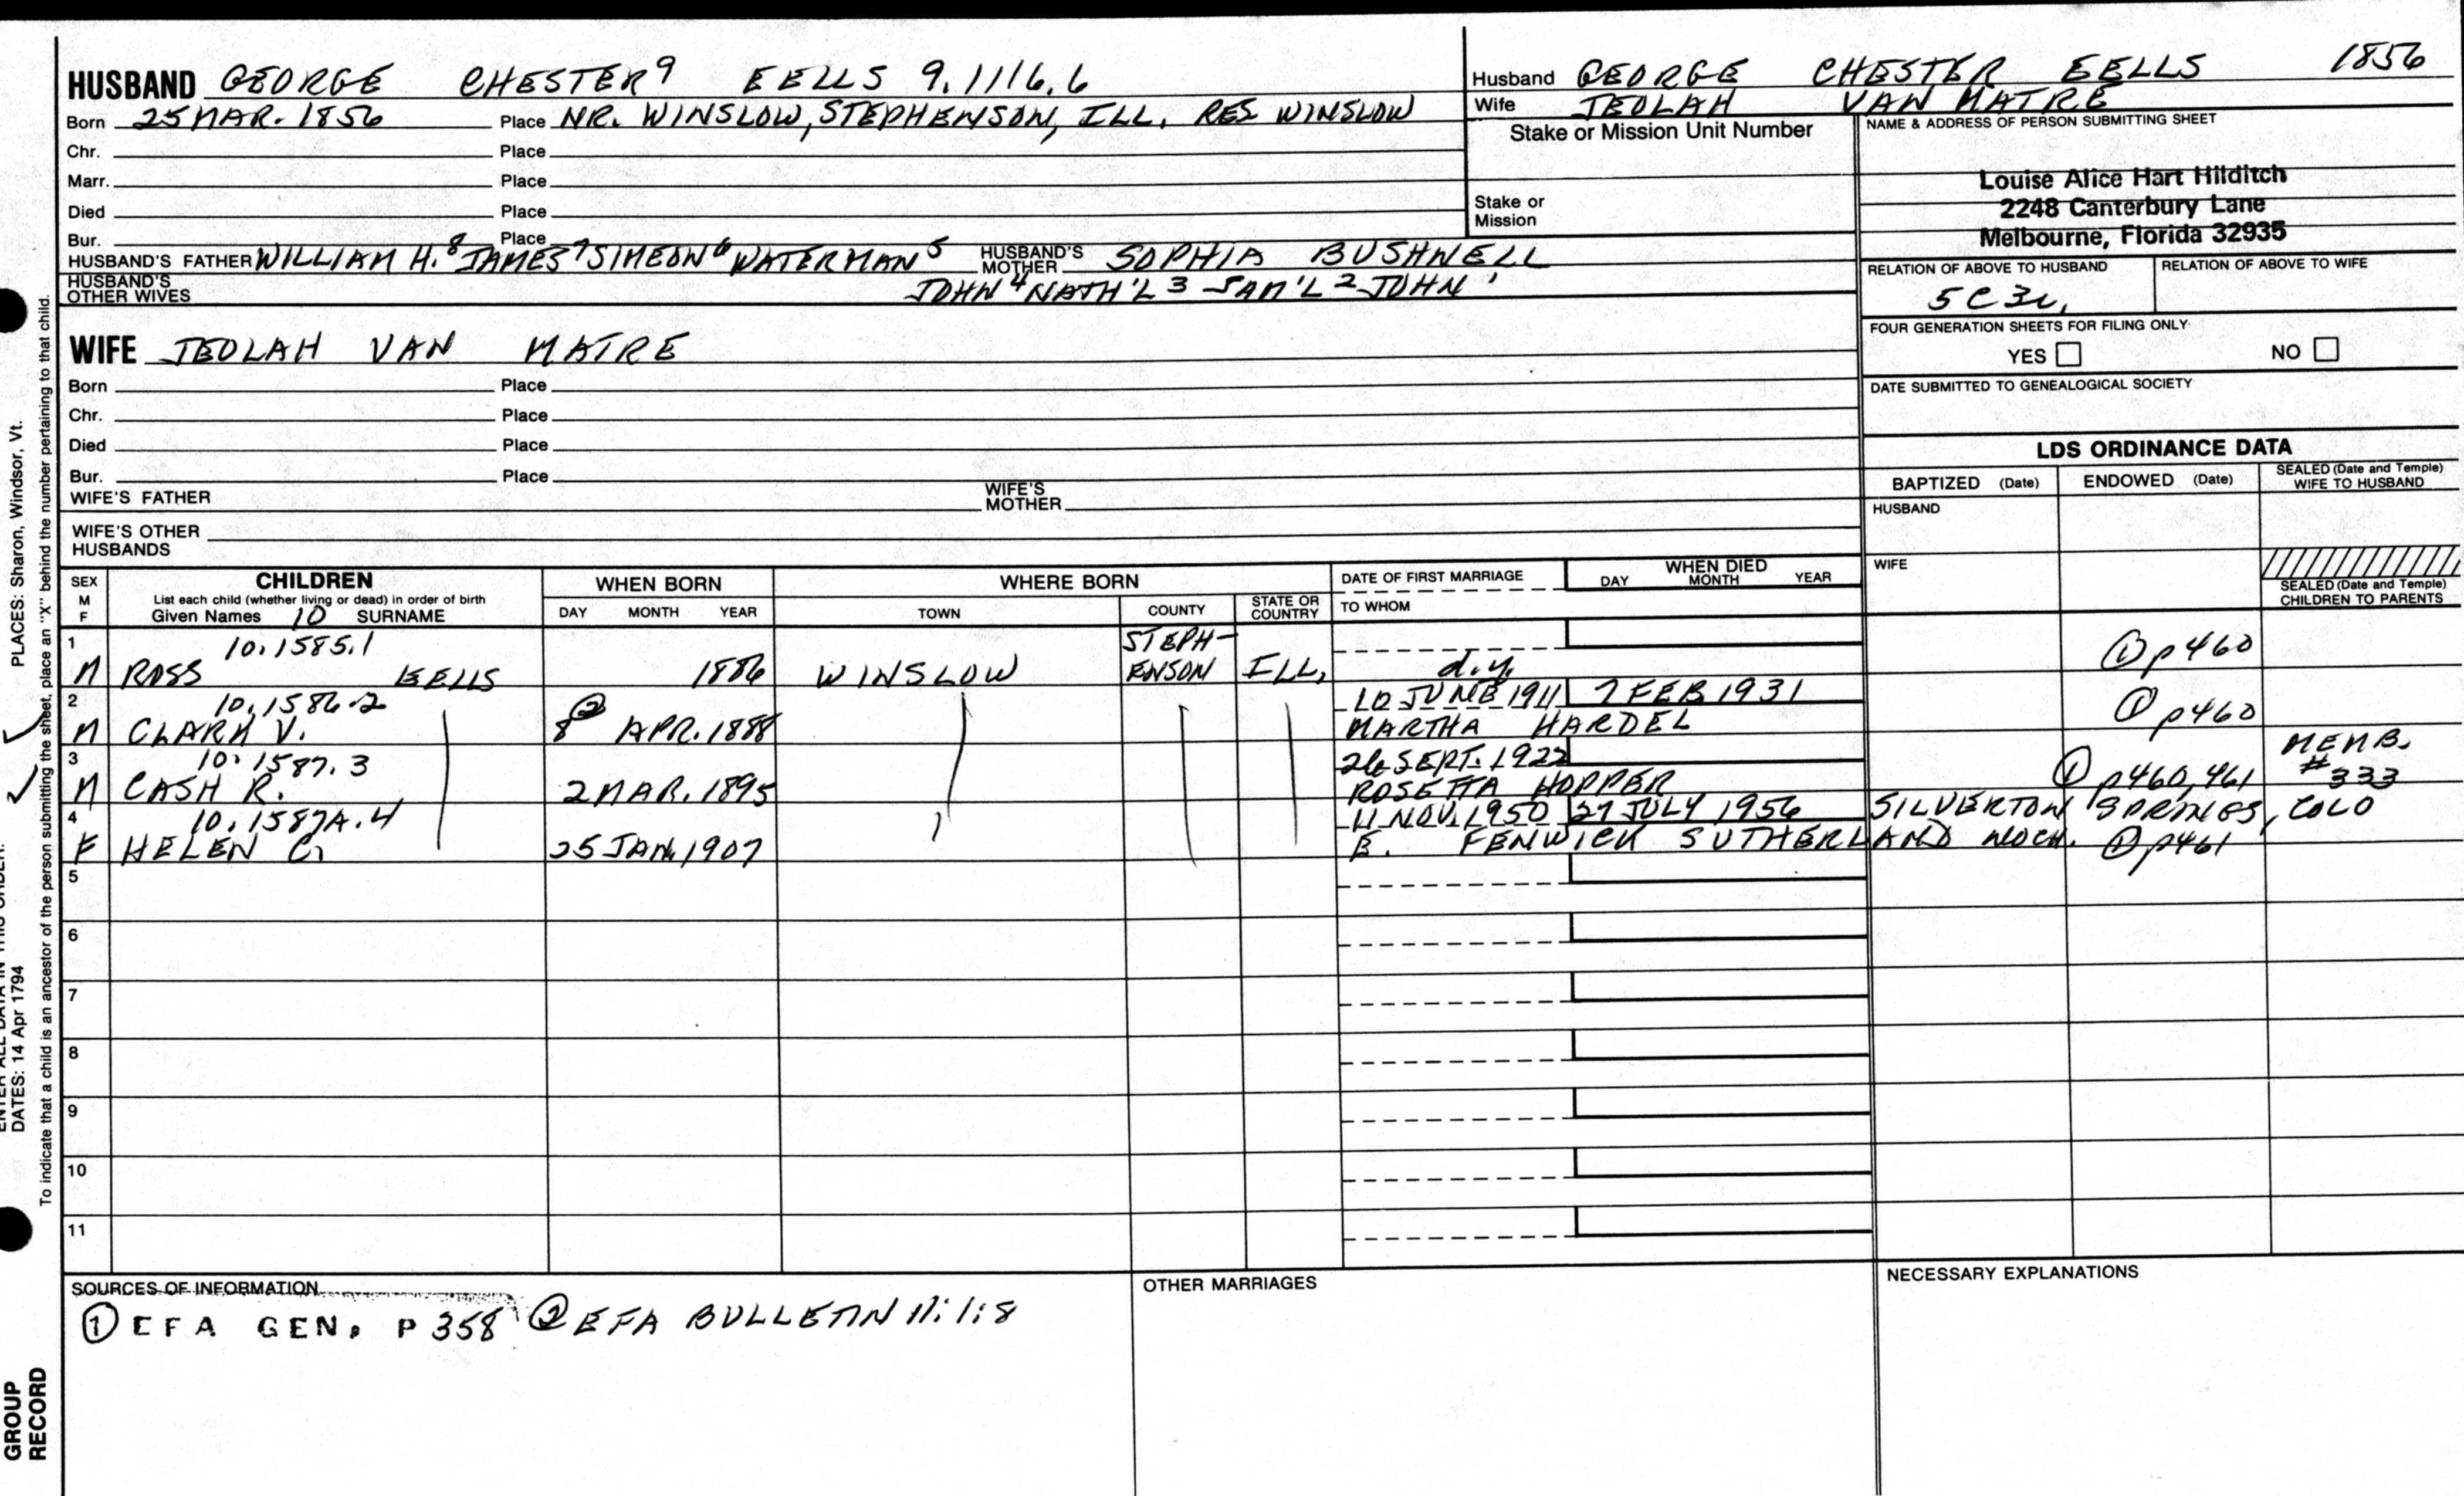 HUSBAND GEORGE CHESTER⁹ EELLS 9.1116.6
Born 25 MAR. 1856 Place NR. WINSLOW, STEPHENSON, ILL. RES WINSLOW
Chr. Place
Marr. Place
Died Place
Bur. Place
HUSBAND'S FATHER WILLIAM H.⁸ JAMES⁷ SIMEON⁶ WATERMAN⁵ HUSBAND'S MOTHER SOPHIA BUSHNELL
HUSBAND'S OTHER WIVES JOHN⁴ NATH'L³ SAM'L² JOHN¹
Husband GEORGE CHESTER EELLS 1856
Wife TEOLAH VAN MATRE
Stake or Mission Unit Number
Stake or Mission
NAME & ADDRESS OF PERSON SUBMITTING SHEET
Louise Alice Hart Hilditch
2248 Canterbury Lane
Melbourne, Florida 32935
RELATION OF ABOVE TO HUSBAND RELATION OF ABOVE TO WIFE
5C3r
FOUR GENERATION SHEETS FOR FILING ONLY
YES NO
DATE SUBMITTED TO GENEALOGICAL SOCIETY
WIFE TEOLAH VAN MATRE
Born Place
Chr. Place
Died Place
Bur. Place
WIFE'S FATHER WIFE'S MOTHER
WIFE'S OTHER HUSBANDS
LDS ORDINANCE DATA
BAPTIZED (Date) ENDOWED (Date) SEALED (Date and Temple) WIFE TO HUSBAND
HUSBAND
WIFE
SEALED (Date and Temple) CHILDREN TO PARENTS
SEX M F
CHILDREN
List each child (whether living or dead) in order of birth
Given Names 10 SURNAME
WHEN BORN
DAY MONTH YEAR
WHERE BORN
TOWN COUNTY STATE OR COUNTRY
DATE OF FIRST MARRIAGE
TO WHOM
WHEN DIED
DAY MONTH YEAR
1 10.1585.1 STEPH-
M ROSS EELLS 1886 WINSLOW ENSON ILL. d.y. ① p460
2 10.1586.2 ② 10 JUNE 1911 7 FEB 1931
M CLARK V. 8 APR. 1888 MARTHA HARDEL ① p460
3 10.1587.3 26 SEPT. 1922 MEMB.
M CASH R. 2 MAR. 1895 ROSETTA HOPPER ① p460,461 #333
4 10.1587A.4 11 NOV. 1950 27 JULY 1956 SILVERTON SPRINGS, COLO
F HELEN C. 25 JAN. 1907 E. FENWICK SUTHERLAND NOCH. ① p461
5
6
7
8
9
10
11
SOURCES OF INFORMATION
① EFA GEN. P 358 ② EFA BULLETIN 11:1:8
OTHER MARRIAGES
NECESSARY EXPLANATIONS
PLACES: Sharon, Windsor, Vt.
DATES: 14 Apr 1794
To indicate that a child is an ancestor of the person submitting the sheet, place an "X" behind the number pertaining to that child.
GROUP
RECORD